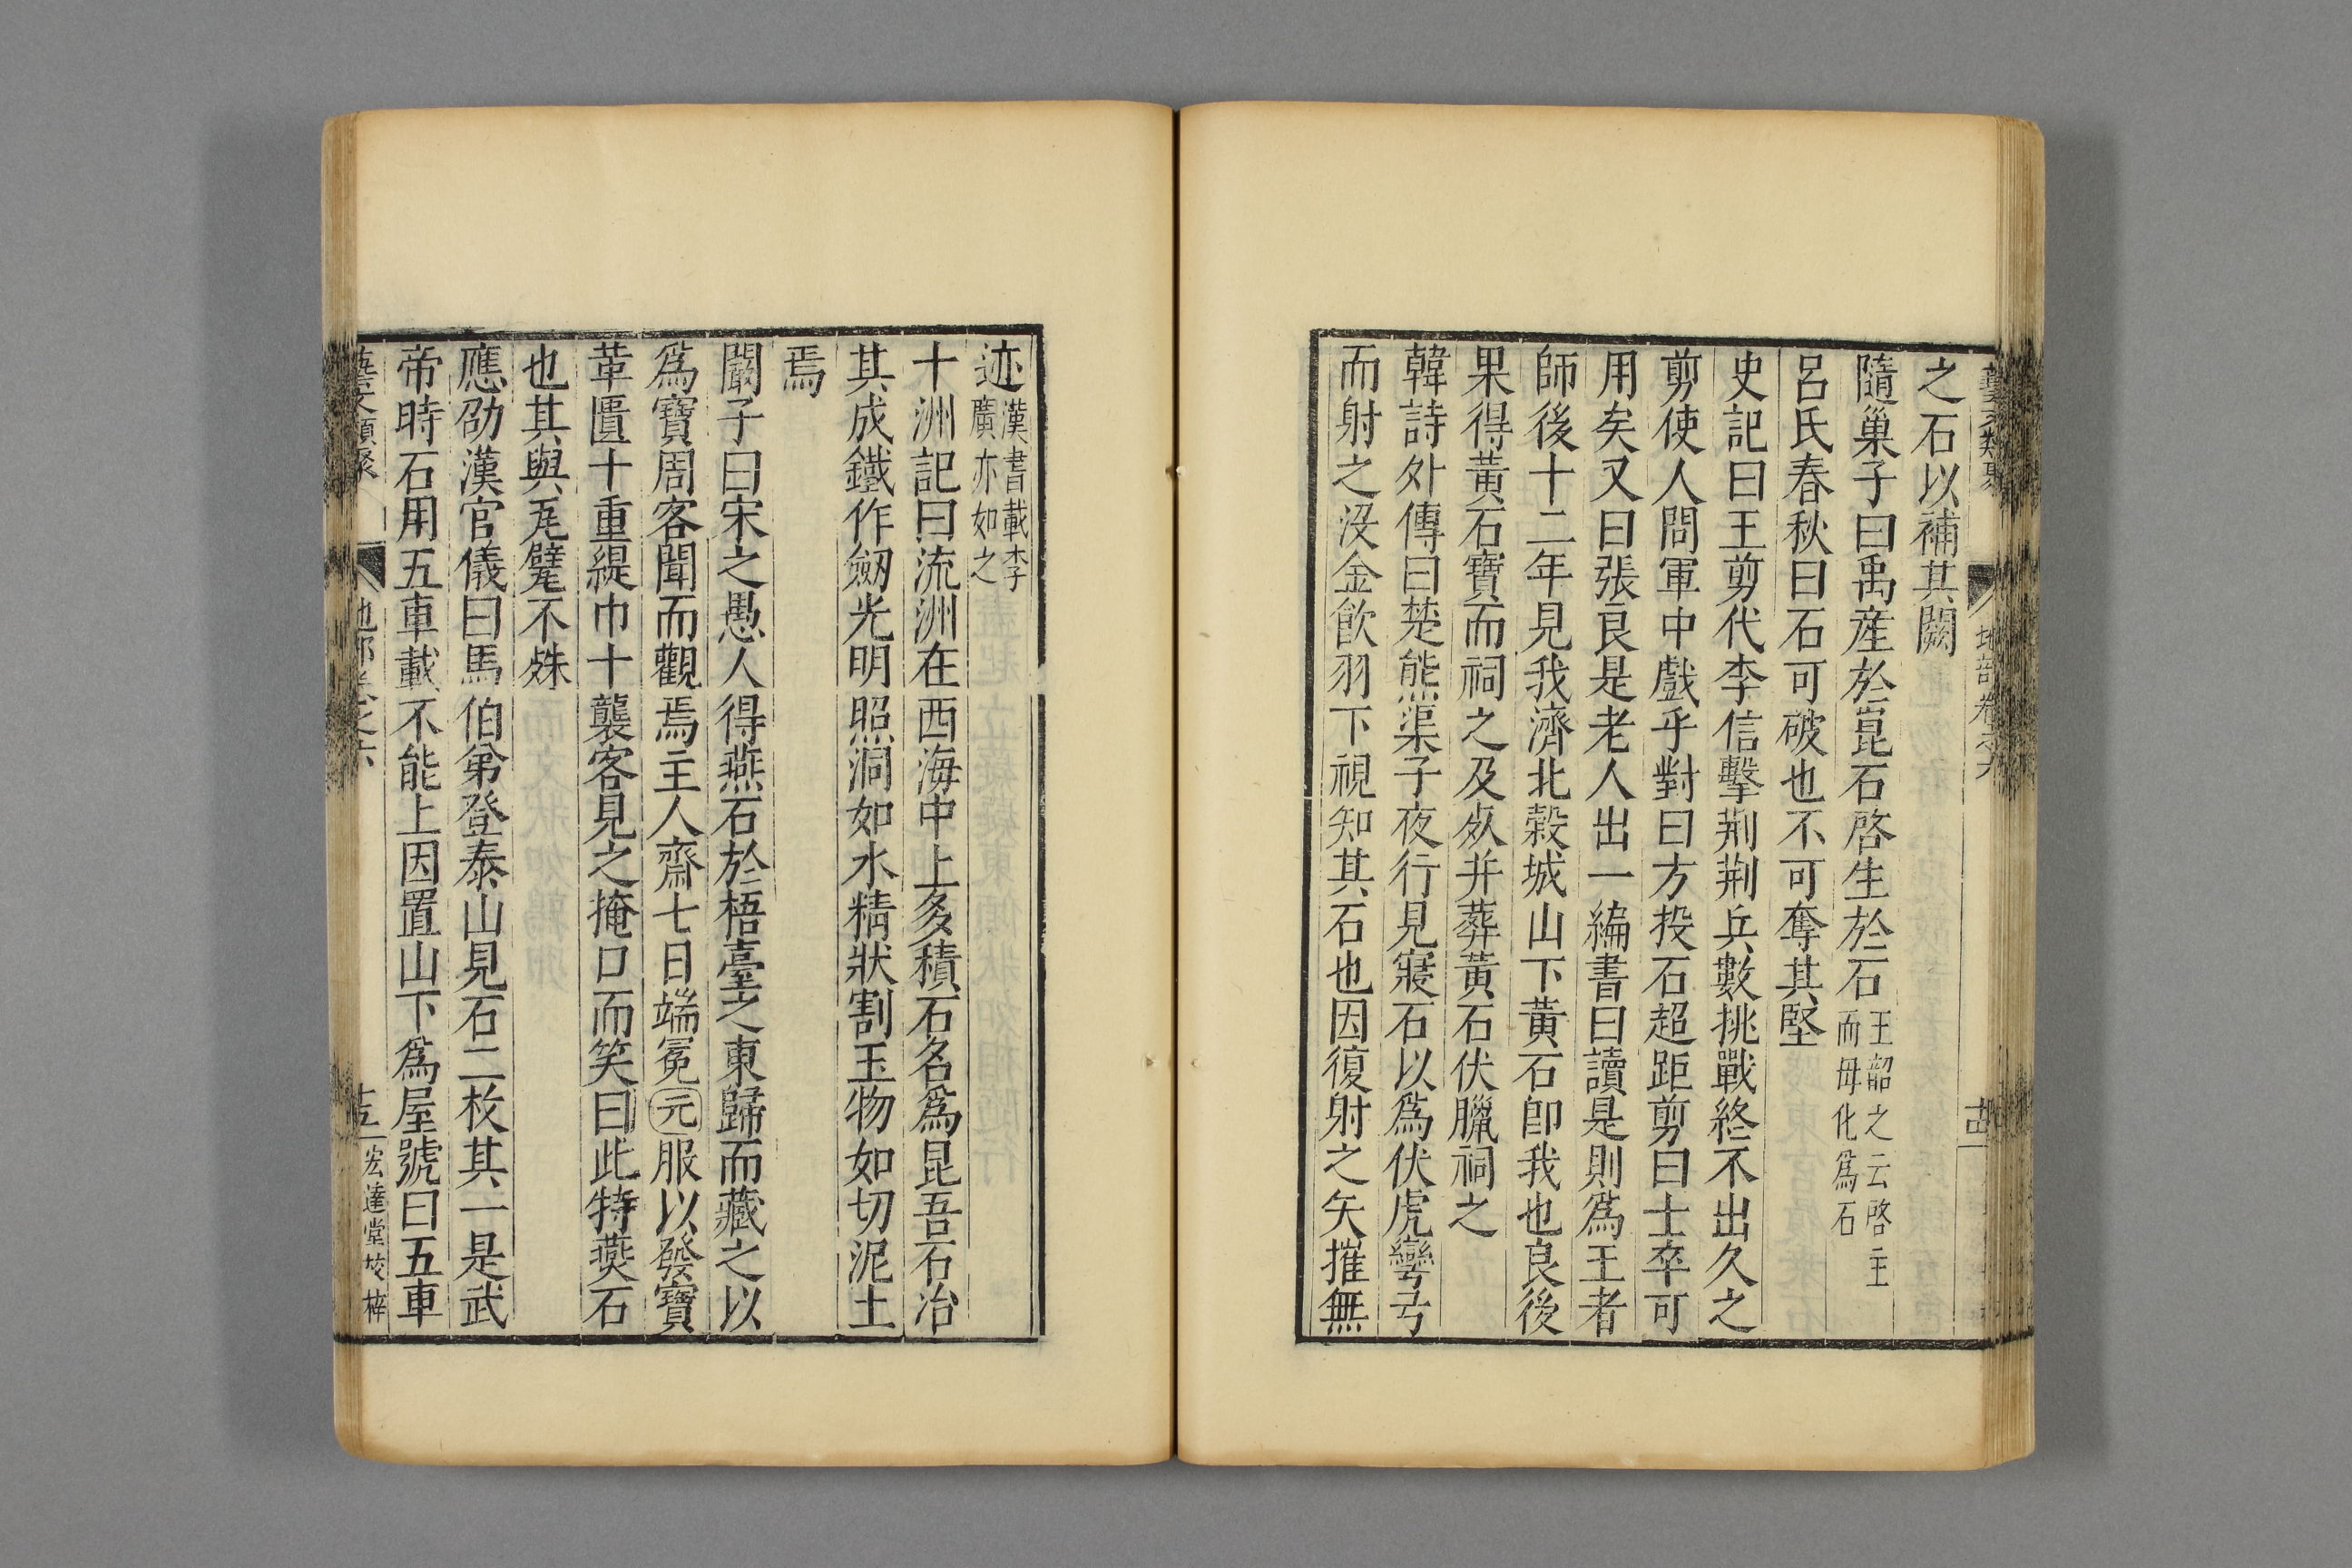 藝文類聚 地部卷之六 十四
之石以補其闕
隨巢子曰禹產於崑石啓生於石王韶之云啓主而母化爲石
呂氏春秋曰石可破也不可奪其堅
史記曰王剪代李信擊荆荆兵數挑戰終不出久之
剪使人問軍中戲乎對曰方投石超距剪曰士卒可
用矣又曰張良是老人出一編書曰讀是則爲王者
師後十二年見我濟北穀城山下黃石卽我也良後
果得黃石寶而祠之及𣦸并葬黃石伏臘祠之
韓詩外傳曰楚熊渠子夜行見寢石以爲伏虎彎弓
而射之沒金飲羽下視知其石也因復射之矢摧無
迹漢書載李廣亦如之
十洲記曰流洲在西海中上多積石名爲昆吾石冶
其成鐵作劒光明照洞如水精狀割玉物如切泥土
焉
闞子曰宋之愚人得燕石於梧臺之東歸而藏之以
爲寶周客聞而觀焉主人齋七日端冕元服以發寶
革匱十重緹巾十襲客見之掩口而笑曰此特燕石
也其與瓦甓不殊
應劭漢官儀曰馬伯弟登泰山見石二枚其一是武
帝時石用五車載不能上因置山下爲屋號曰五車
藝文類聚 地部卷之六 十五 宏達堂校梓